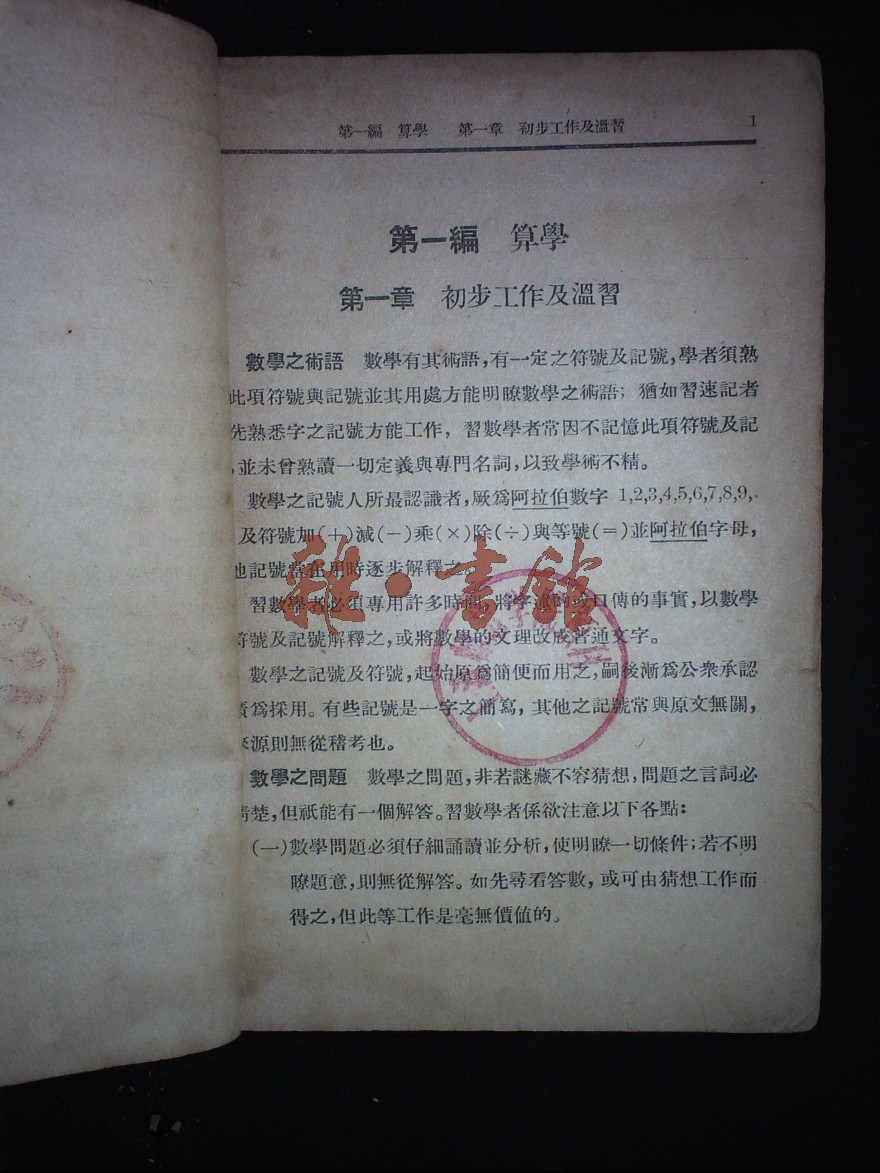 第一編 算學 第一章 初步工作及溫習 1
第一編 算學
第一章 初步工作及溫習
數學之術語 數學有其術語,有一定之符號及記號,學者須熟
此項符號與記號並其用處方能明瞭數學之術語;猶如習速記者
先熟悉字之記號方能工作,習數學者常因不記憶此項符號及記
,並未曾熟讀一切定義與專門名詞,以致學術不精。
數學之記號人所最認識者,厥爲阿拉伯數字 1,2,3,4,5,6,7,8,9,
及符號加(+)減(-)乘(×)除(÷)與等號(=)並阿拉伯字母,
他記號當在用時逐步解釋之。
習數學者必須專用許多時間,將字述的或口傳的事實,以數學
符號及記號解釋之,或將數學的文理改成普通文字。
數學之記號及符號,起始原爲簡便而用之,嗣後漸爲公衆承認
爲採用。有些記號是一字之簡寫,其他之記號常與原文無關,
來源則無從稽考也。
數學之問題 數學之問題,非若謎藏不容猜想,問題之言詞必
清楚,但祇能有一個解答。習數學者係欲注意以下各點:
(一)數學問題必須仔細誦讀並分析,使明瞭一切條件;若不明
瞭題意,則無從解答。如先尋看答數,或可由猜想工作而
得之,但此等工作是毫無價值的。
雜·書館